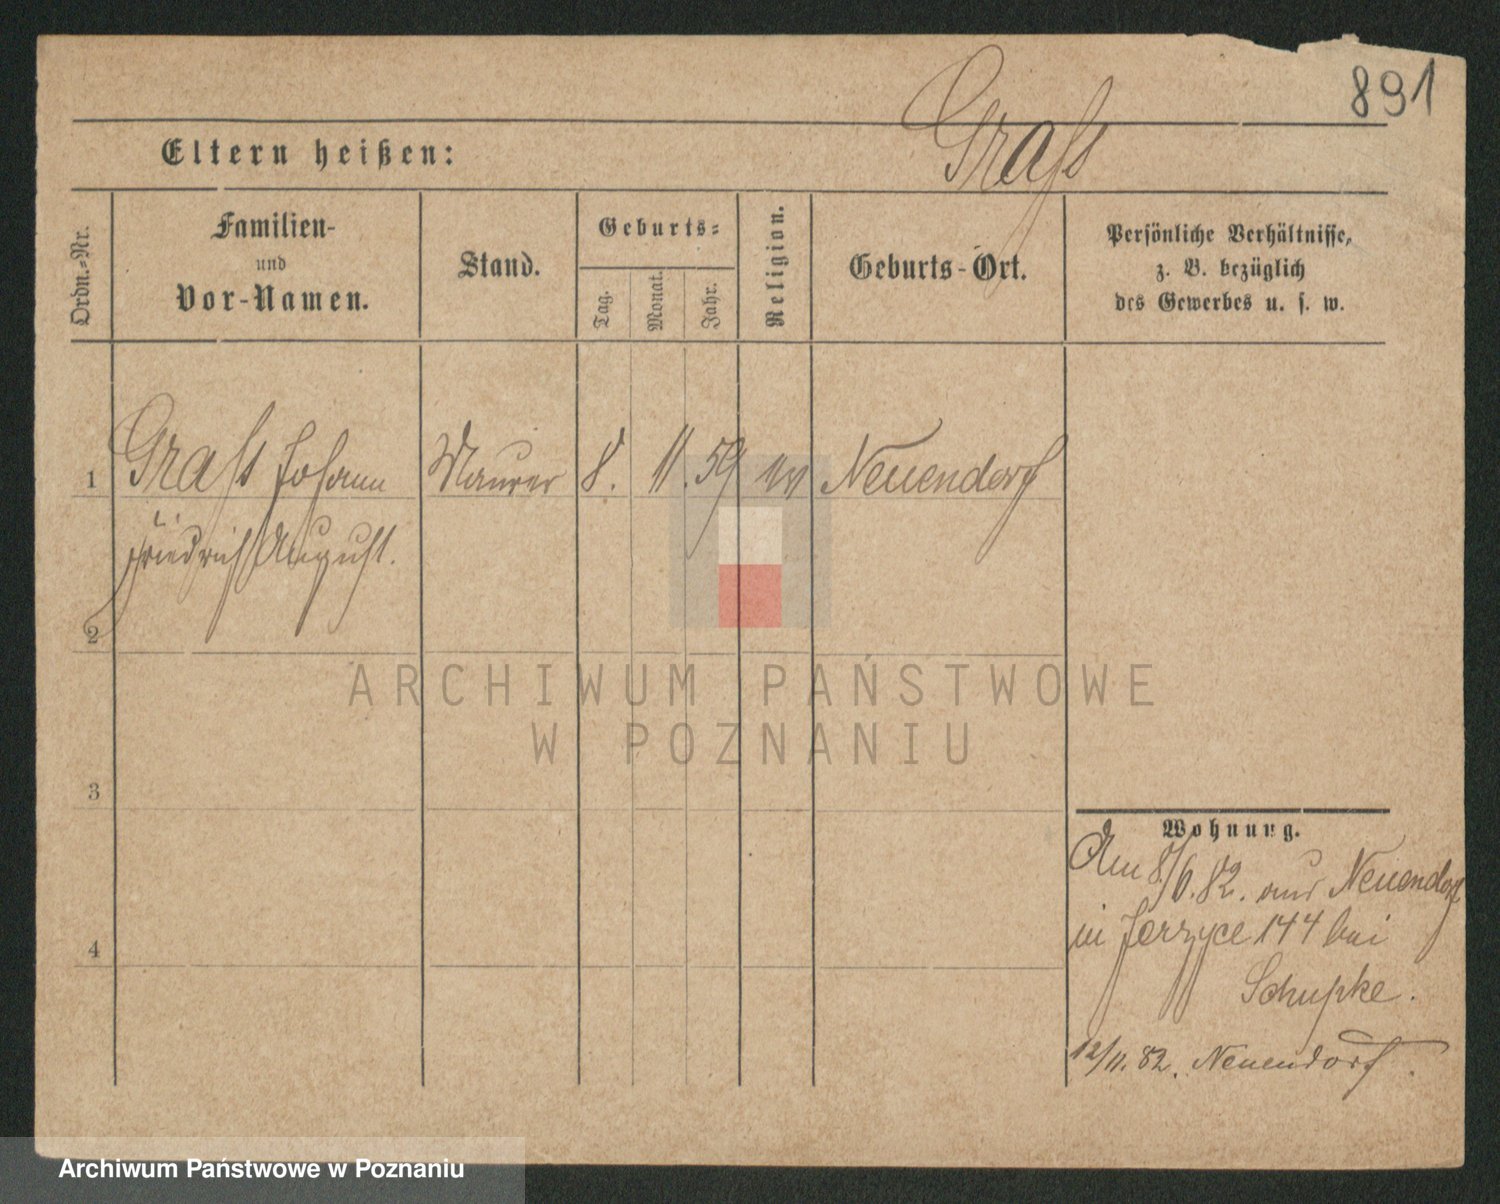 891
Grafs
Eltern heißen:
Ordn.-Nr.
Familien-
und
Vor-Namen.
Stand.
Geburts-
Tag.
Monat.
Jahr.
Religion.
Geburts-Ort.
Persönliche Verhältnisse,
z. B. bezüglich
des Gewerbes u. s. w.
1 Grafs Johann Maurer 8. 11. 59 ev Neuendorf
Friedrich August.
2
ARCHIWUM PAŃSTWOWE
W POZNANIU
3
Wohnung.
Am 8/6.82. aus Neuendorf
in Jerzyce 144 bei
4
Schupke.
12/11.82. Neuendorf.
Archiwum Państwowe w Poznaniu